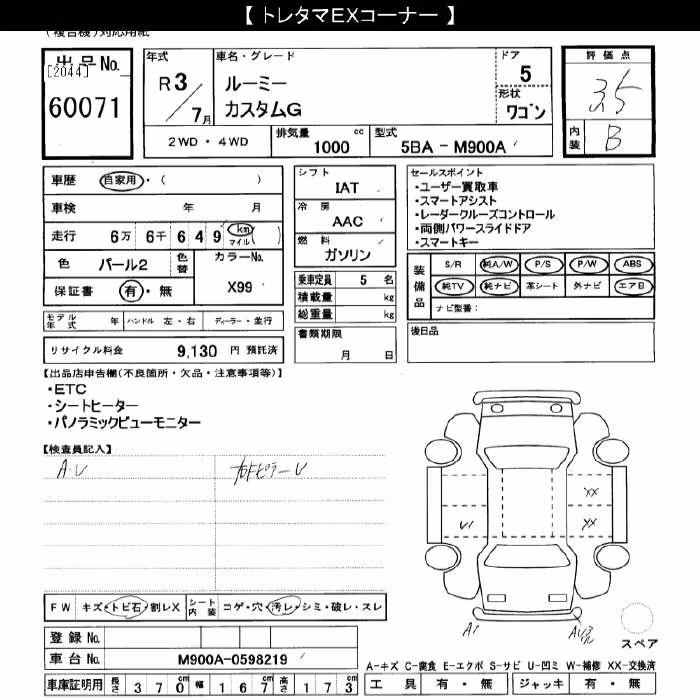 【 トレタマEXコーナー 】
(複合機)対応用紙
出品No.
[2044]
60071
年式
R3/7月
車名・グレード
ルーミー
カスタムG
ドア
5
形状
ワゴン
評価点
3.5
内装
B
2WD・4WD
排気量 cc
1000
型式
5BA - M900A
車歴 自家用・( )
車検 年 月
走行 6万 6千 6 4 9 km マイル ( )
色 パール2 色替 カラーNo. X99
保証書 有・無
モデル年式 年 ハンドル 左・右 ディーラー・並行
リサイクル料金 9,130 円 預託済
シフト
IAT
冷房
AAC
燃料
ガソリン
乗車定員 5 名
積載量 kg
総重量 kg
書類期限
月 日
セールスポイント
・ユーザー買取車
・スマートアシスト
・レーダークルーズコントロール
・両側パワースライドドア
・スマートキー
装備品
S/R 純A/W P/S P/W ABS
純TV 純ナビ 革シート 外ナビ エアB
ナビ型番:
後日品
【出品店申告欄(不良箇所・欠品・注意事項等)】
・ETC
・シートヒーター
・パノラミックビューモニター
【検査員記入】
A・U
右Fピラー U
XX
XX
U1
A1
スペア
FW キズ・トビ石・割レX シート内装 コゲ・穴・汚レ・シミ・破レ・スレ
登録No.
車台No. M900A-0598219
車庫証明用 長さ 370 幅 167 高さ 173
A-キズ C-腐食 E-エクボ S-サビ U-凹ミ W-補修 XX-交換済
工具 有・無 ジャッキ 有・無